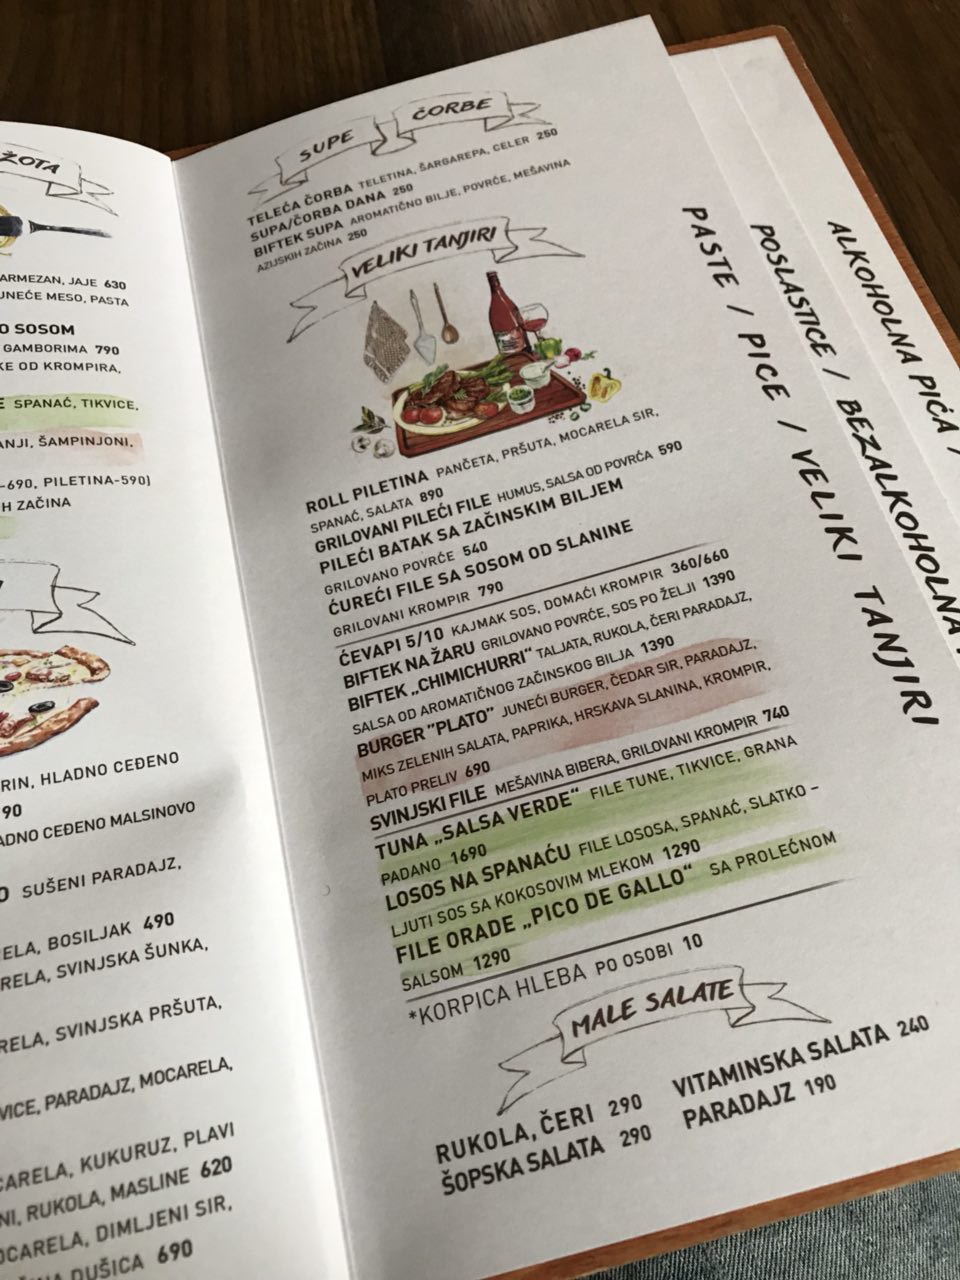 ŽOTA
ARMEZAN, JAJE 630
UNEĆE MESO, PASTA
O SOSOM
GAMBORIMA 790
KE OD KROMPIRA,
E SPANAĆ, TIKVICE,
ANJI, ŠAMPINJONI,
-690, PILETINA-590)
H ZAČINA
RIN, HLADNO CEĐENO
90
ADNO CEĐENO MALSINOVO
O SUŠENI PARADAJZ,
ELA, BOSILJAK 490
RELA, SVINJSKA ŠUNKA,
RELA, SVINJSKA PRŠUTA,
VICE, PARADAJZ, MOCARELA,
CARELA, KUKURUZ, PLAVI
NI, RUKOLA, MASLINE 620
OCARELA, DIMLJENI SIR,
DUŠICA 690
SUPE ČORBE
TELEĆA ČORBA TELETINA, ŠARGAREPA, CELER 250
SUPA/ČORBA DANA 250
BIFTEK SUPA AROMATIČNO BILJE, POVRĆE, MEŠAVINA
AZIJSKIH ZAČINA 250
VELIKI TANJIRI
ROLL PILETINA PANČETA, PRŠUTA, MOCARELA SIR,
SPANAĆ, SALATA 890
GRILOVANI PILEĆI FILE HUMUS, SALSA OD POVRĆA 590
PILEĆI BATAK SA ZAČINSKIM BILJEM
GRILOVANO POVRĆE 540
ĆUREĆI FILE SA SOSOM OD SLANINE
GRILOVANI KROMPIR 790
ĆEVAPI 5/10 KAJMAK SOS, DOMAĆI KROMPIR 360/660
BIFTEK NA ŽARU GRILOVANO POVRĆE, SOS PO ŽELJI 1390
BIFTEK „CHIMICHURRI“ TALJATA, RUKOLA, ČERI PARADAJZ,
SALSA OD AROMATIČNOG ZAČINSKOG BILJA 1390
BURGER "PLATO" JUNEĆI BURGER, ČEDAR SIR, PARADAJZ,
MIKS ZELENIH SALATA, PAPRIKA, HRSKAVA SLANINA, KROMPIR,
PLATO PRELIV 690
SVINJSKI FILE MEŠAVINA BIBERA, GRILOVANI KROMPIR 740
TUNA „SALSA VERDE“ FILE TUNE, TIKVICE, GRANA
PADANO 1690
LOSOS NA SPANAĆU FILE LOSOSA, SPANAĆ, SLATKO –
LJUTI SOS SA KOKOSOVIM MLEKOM 1290
FILE ORADE „PICO DE GALLO“ SA PROLEĆNOM
SALSOM 1290
*KORPICA HLEBA PO OSOBI 10
MALE SALATE
RUKOLA, ČERI 290
ŠOPSKA SALATA 290
VITAMINSKA SALATA 240
PARADAJZ 190
PASTE / PICE / VELIKI TANJIRI
POSLASTICE / BEZALKOHOLNA
ALKOHOLNA PIĆA /